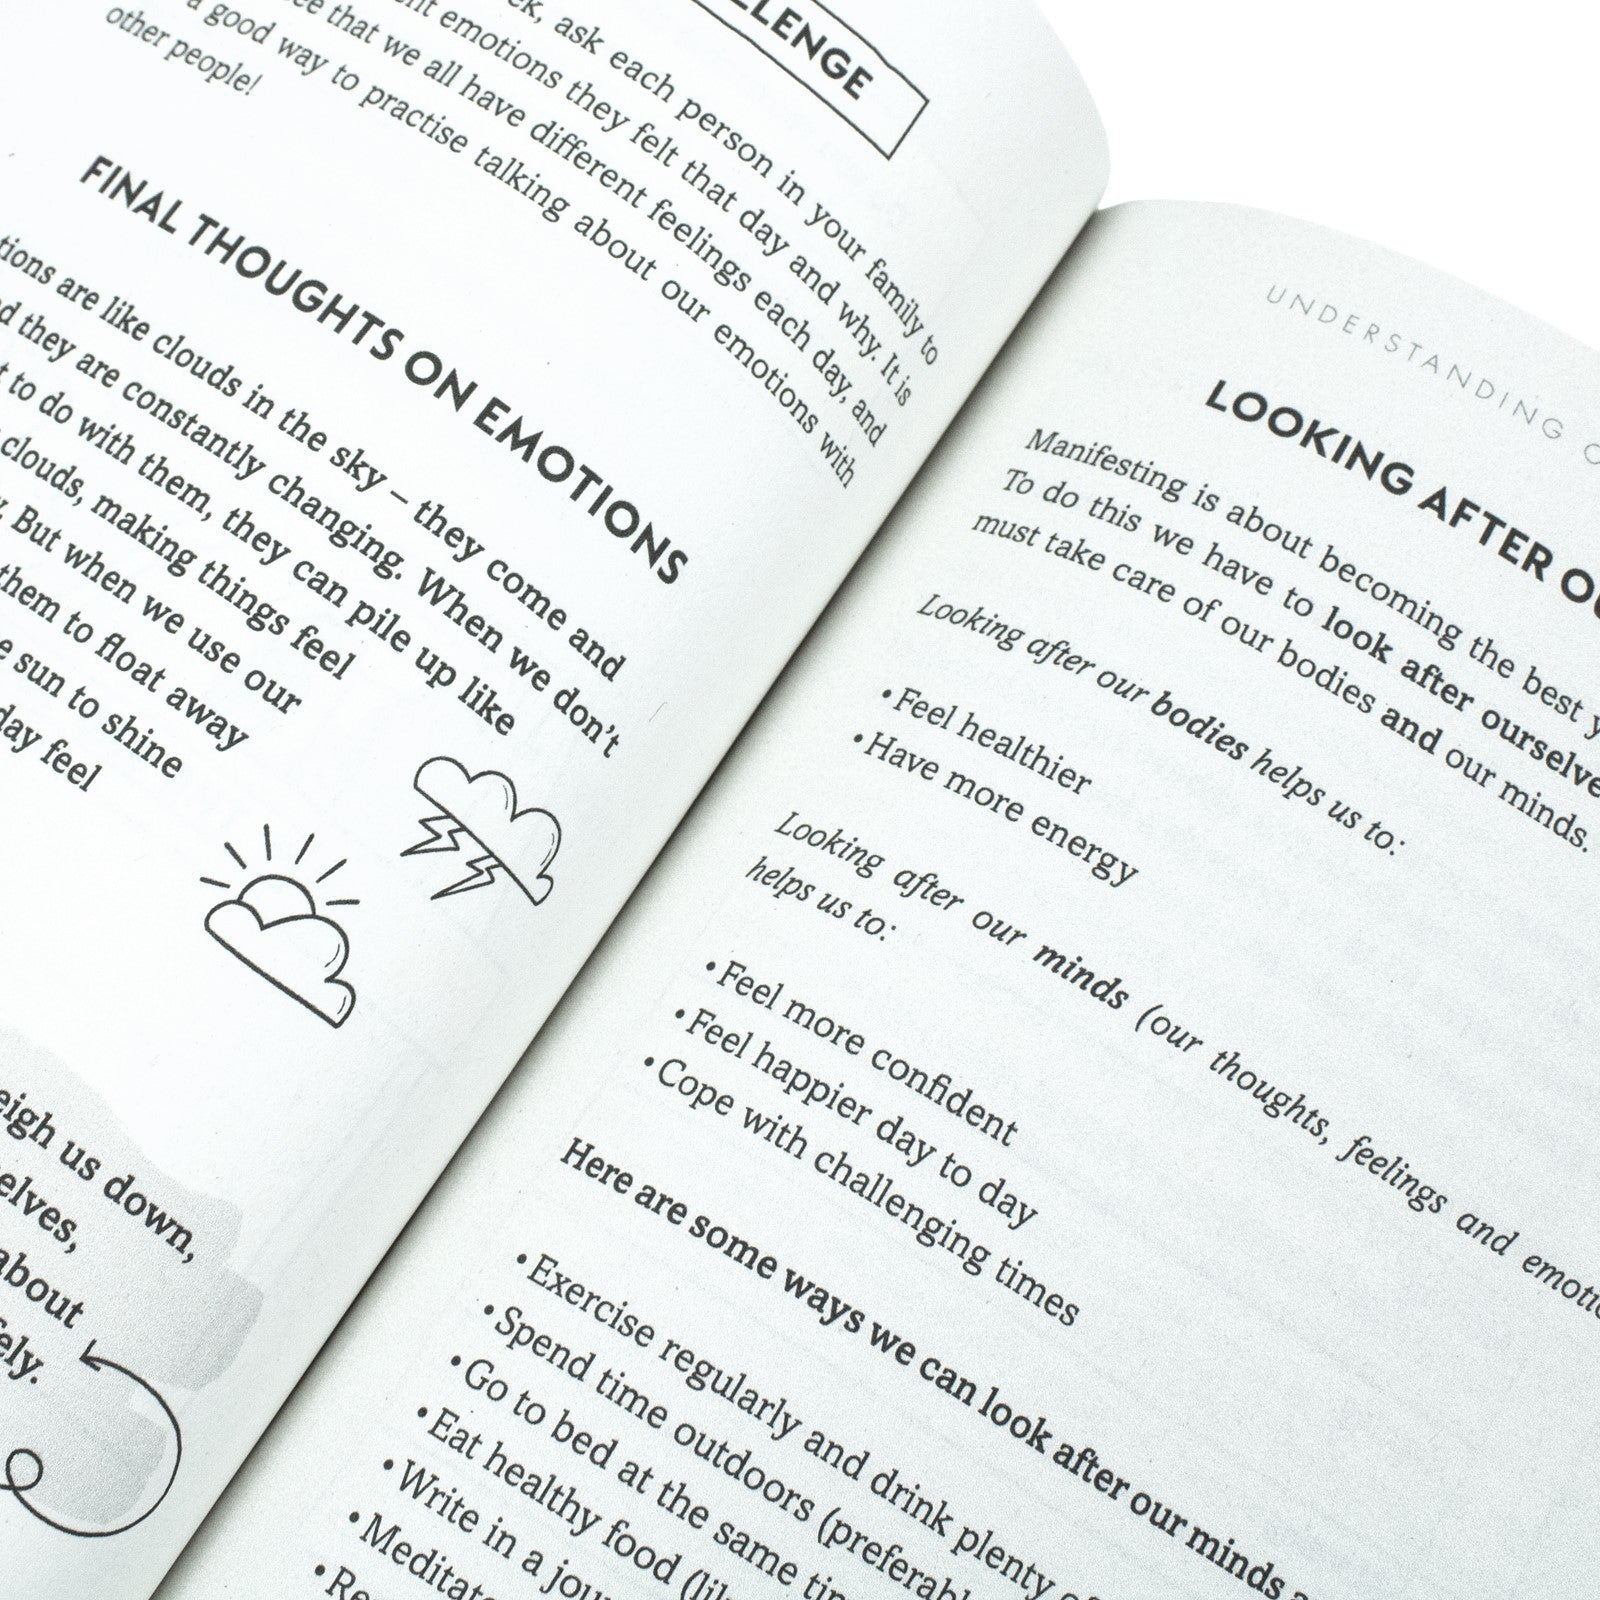 ask each person in your family to
emotions they felt that day and why. It is
that we all have different feelings each day, and
a good way to practise talking about our emotions with
other people!
FINAL THOUGHTS ON EMOTIONS
are like clouds in the sky – they come and
they are constantly changing. When we don't
to do with them, they can pile up like
clouds, making things feel
But when we use our
them to float away
sun to shine
day feel
us down,
about
UNDERSTANDING
LOOKING AFTER
Manifesting is about becoming the best
To do this we have to look after
must take care of our bodies and our minds.
Looking after our bodies helps us to:
• Feel healthier
• Have more energy
Looking after our minds (our thoughts, feelings and
helps us to:
• Feel more confident
• Feel happier day to day
• Cope with challenging times
Here are some ways we can look after our minds
• Exercise regularly and drink plenty
• Spend time outdoors
• Go to bed at the same
• Eat healthy food
• Write in a
• Meditate